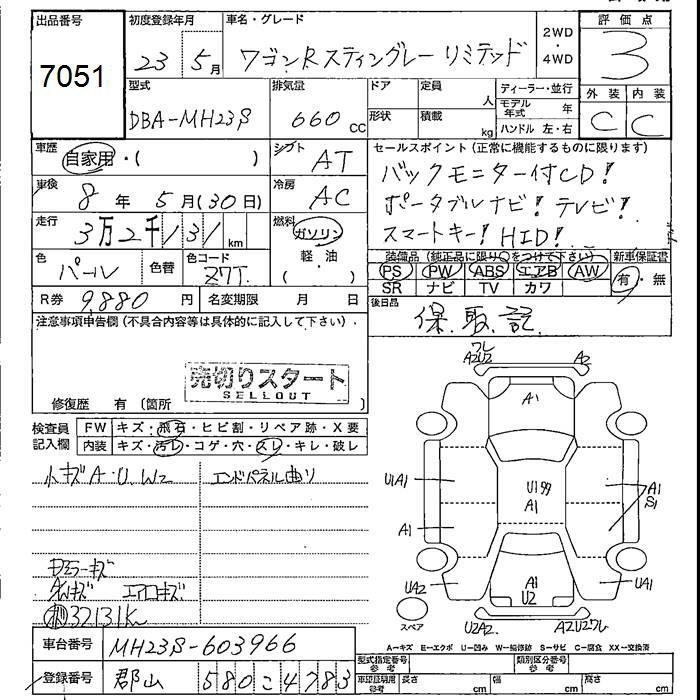 出品番号
7051
初度登録年月
23 5月
車名・グレード
ワゴンR スティングレー リミテッド
2WD
・
4WD
評価点
3
外装 内装
C C
型式
DBA-MH23S
排気量
660 CC
ドア
形状
定員
人
積載
kg
ディーラー・並行
モデル年式 年
ハンドル 左・右
車歴
自家用・( )
シフト
AT
車検
8年 5月(30日)
冷房
AC
走行
3万2千131 km
燃料
ガソリン
軽・油
( )
色
パール
色替
色コード
Z7T
セールスポイント(正常に機能するものに限ります)
バックモニター付CD!
ポータブルナビ! テレビ!
スマートキー! HID!
装備品(純正品に限り○をつけて下さい)
PS PW ABS エアB AW
SR ナビ TV カワ
新車保証書
有・無
R券 9,880 円
名変期限 月 日
後日品
保.取.記.
注意事項申告欄(不具合内容等は具体的に記入して下さい).
売切りスタート
SELLOUT
修復歴 有 (箇所 )
検査員
記入欄
FW キズ・飛石・ヒビ割・リペア跡・X要
内装 キズ・汚レ・コゲ・穴・スレ・キレ・破レ
小キズA・U.W2
エンドパネル曲り
ミラーキズ
AWキズ エアロキズ
32131K
ワレ
A2U2 A2
A1
U1A1
U199
A1
A1
S1
A1
UA2
A1
U2
UA1
スペア
U2A2
A2U2ワレ
A-キズ E-エクボ U-凹み W-補修跡 S-サビ C-腐食 XX-交換済
車台番号 MH23S-603966
登録番号 郡山 580 こ 4783
型式指定番号
参考
類別区分番号
参考
車庫証明用
参考
長さ cm 幅 cm 高さ cm